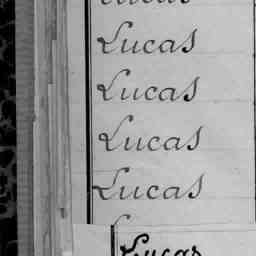 Lucas
Lucas
Lucas
Lucas
Lucas
Lucas